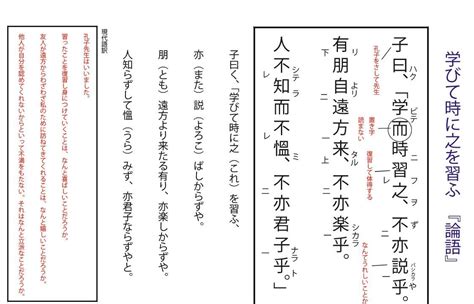 学びて時に之を習ふ 『論語』
子曰、「学而時習之、不亦説乎。
ハク ビテ ニ フ ヲ ず バシカラ や
孔子をさして先生
置き字
読まない
復習して体得する
なんとうれしいことだ
レ 二 一
有朋自遠方来、不亦楽乎。
リ より リ タル シカラ
下 二 一 上 二
人不知而不慍、不亦君子乎。」
シテ ラ ミ ナラト
レ レ 二 一
子曰く、「学びて時に之（これ）を習ふ、
亦（また）説（よろこ）ばしからずや。
朋（とも）遠方より来たる有り、亦楽しからずや。
人知らずして慍（うら）みず、亦君子ならずやと。
現代語訳
孔子先生はいいました。
習ったことを復習し身につけていくことは、なんと喜ばしいことだろうか。
友人が遠方からわざわざ私のために訪ねてきてくれることは、なんと嬉しいことだろうか。
他人が自分を認めてくれないからといって不満をもたない、それはなんと立派なことだろうか。